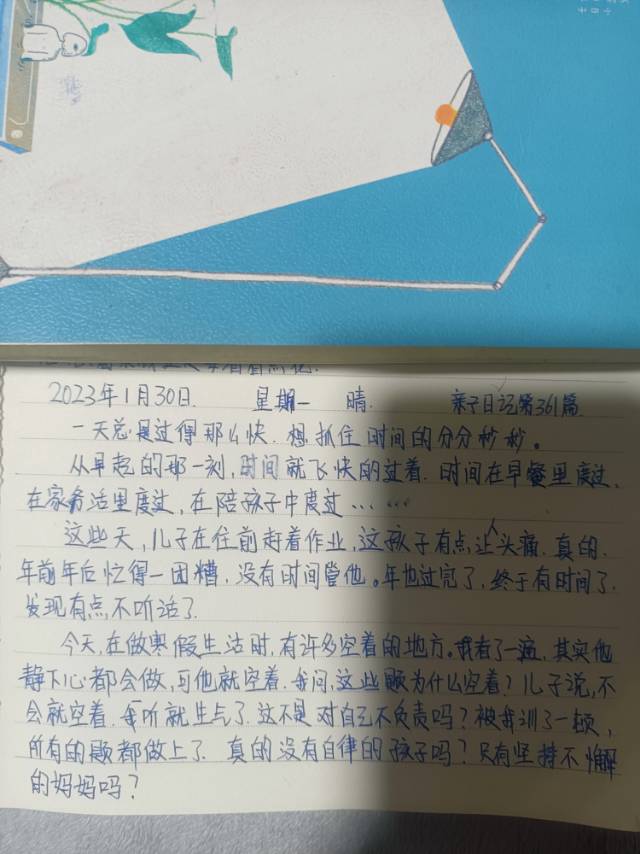 2023年1月30日 星期一 晴 亲子日记第361篇
一天总是过得那么快.想抓住时间的分分秒秒。
从早起的那一刻,时间就飞快的过着.时间在早餐里度过,
在家务活里度过,在陪孩子中度过……
这些天,儿子在往前赶着作业,这孩子有点让人头痛.真的.
年前年后忙得一团糟,没有时间管他。年也过完了,终于有时间了.
发现有点不听话了.
今天,在做寒假生活时,有许多空着的地方。我看了一遍,其实他
静下心都会做,可他就空着.我问,这些题为什么空着?儿子说,不
会就空着.我听就生气了.这不是对自己不负责吗?被我训了一顿,
所有的题都做上了.真的没有自律的孩子吗?只有坚持不懈
的妈妈吗?